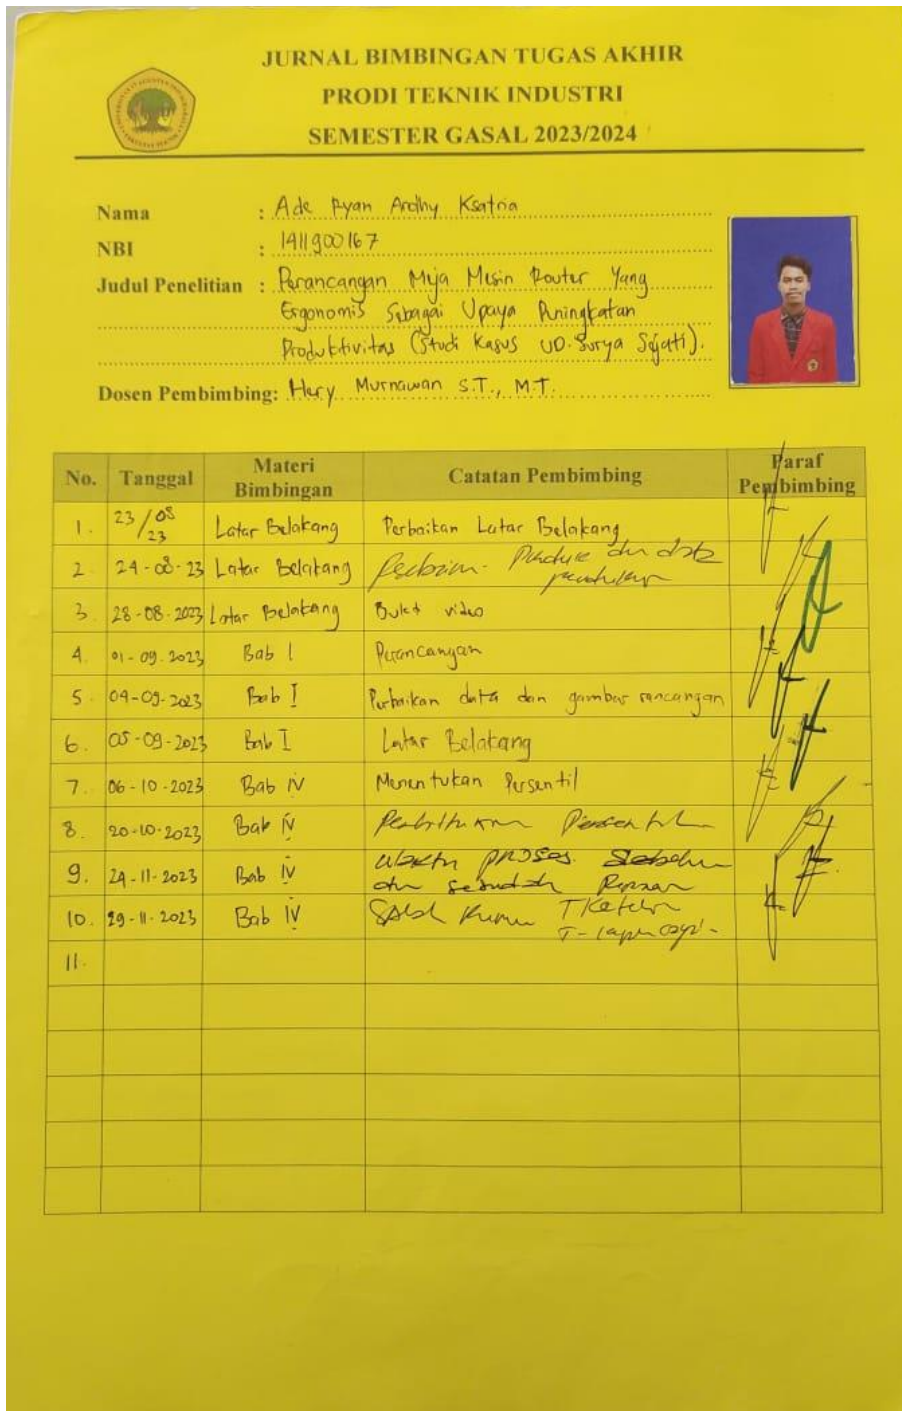 JURNAL BIMBINGAN TUGAS AKHIR
PRODI TEKNIK INDUSTRI
SEMESTER GASAL 2023/2024
Nama : Ade Ryan Ardhy Ksatria
NBI : 1411900167
Judul Penelitian : Perancangan Meja Mesin Router Yang
Ergonomis Sebagai Upaya Peningkatan
Produktivitas (Studi Kasus UD. Surya Sejati).
Dosen Pembimbing: Hery Murnawan S.T., M.T.
No. Tanggal Materi Bimbingan Catatan Pembimbing Paraf Pembimbing
1. 23/08 23 Latar Belakang Perbaikan Latar Belakang
2. 24-08-23 Latar Belakang dan data
3. 28-08-2023 Latar Belakang video
4. 01-09-2023 Bab I Perancangan
5. 04-09-2023 Bab I Perbaikan data dan gambar rancangan
6. 05-09-2023 Bab I Latar Belakang
7. 06-10-2023 Bab IV Menentukan Persentil
8. 20-10-2023 Bab IV
9. 24-11-2023 Bab IV waktu proses sebelum
dan sesudah
10. 29-11-2023 Bab IV
11.